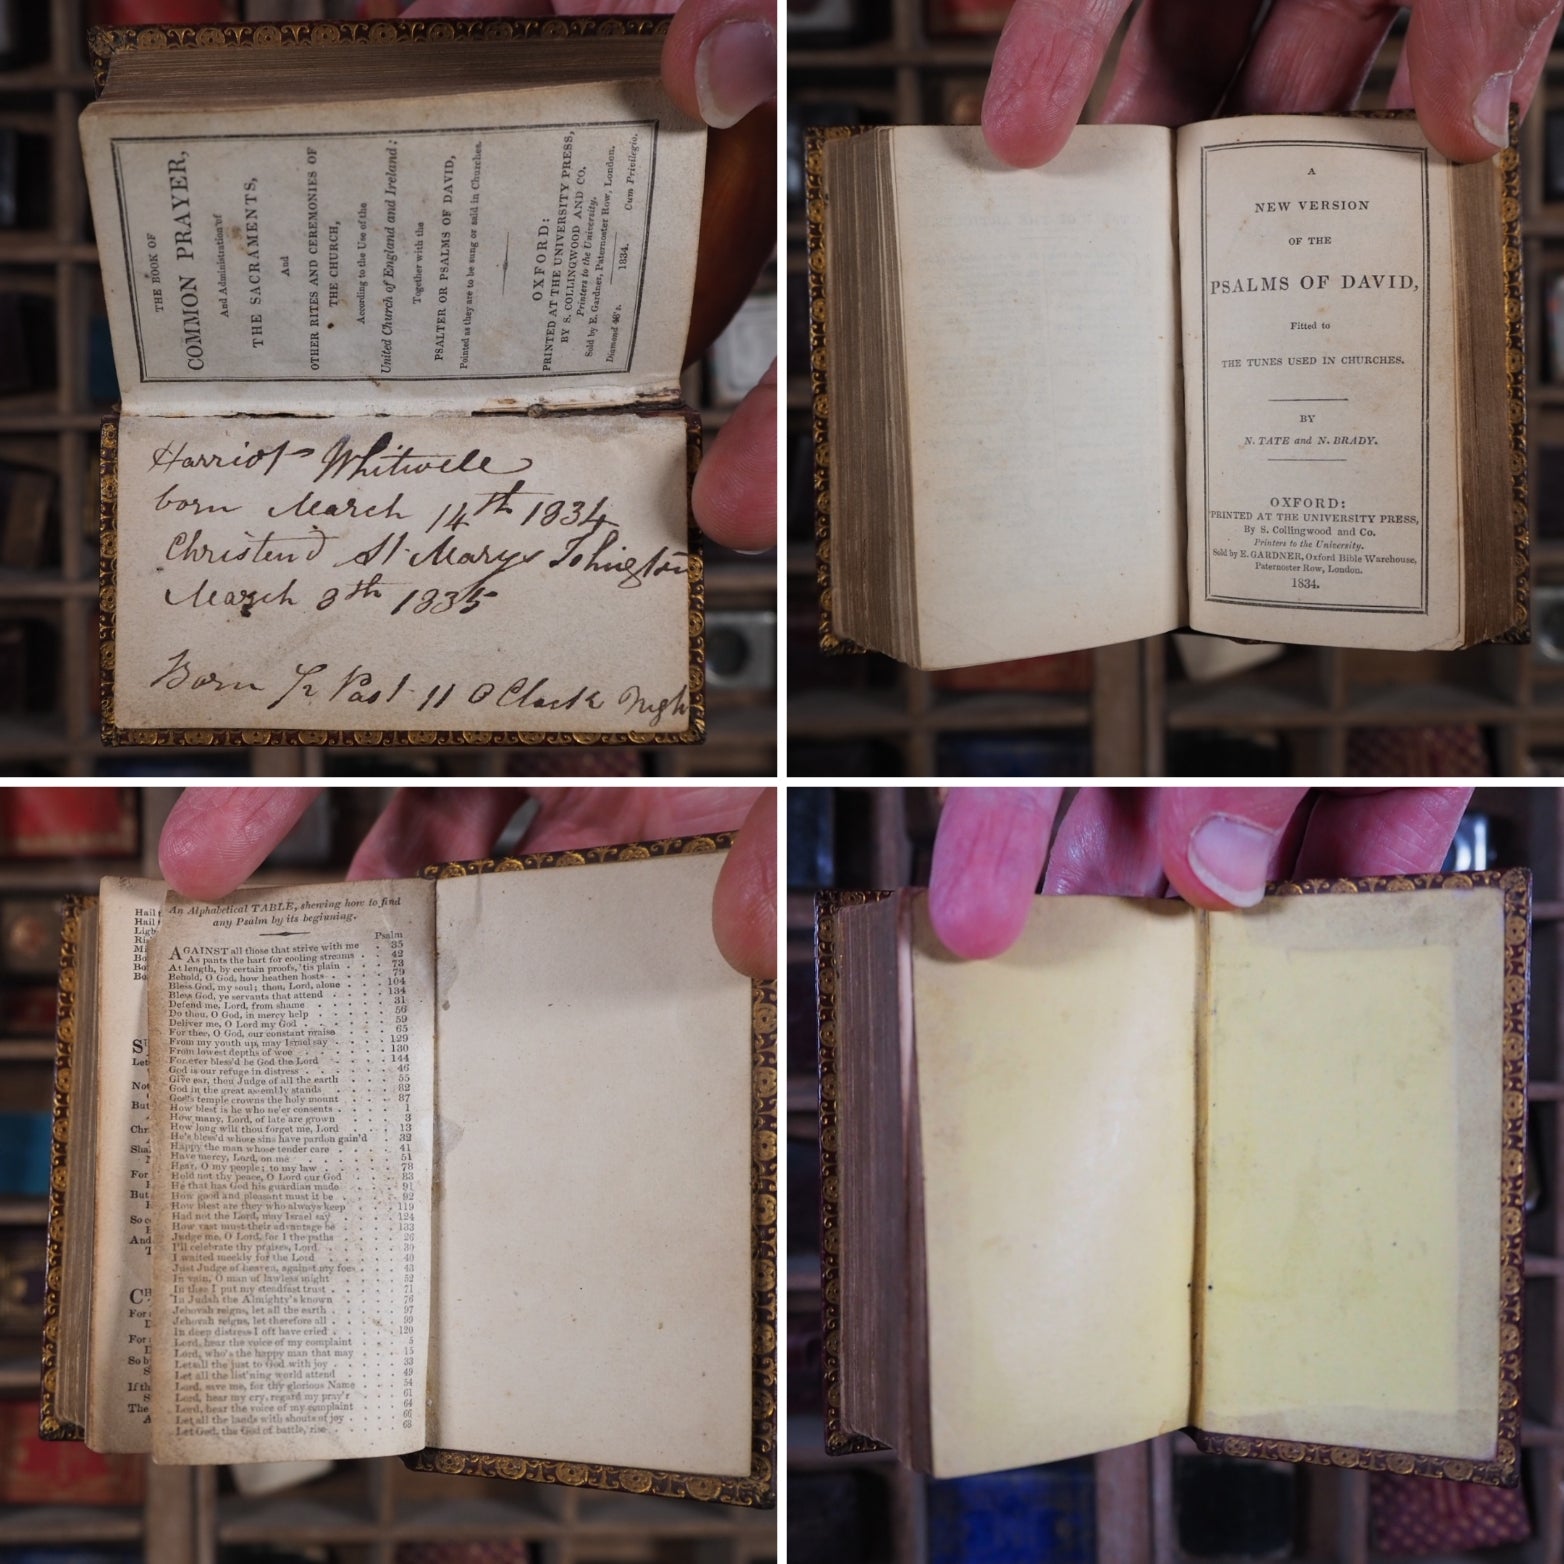 THE BOOK OF
COMMON PRAYER,
And Administration of
THE SACRAMENTS,
And
OTHER RITES AND CEREMONIES OF
THE CHURCH,
According to the Use of the
United Church of England and Ireland:
Together with the
PSALTER OR PSALMS OF DAVID,
Pointed as they are to be sung or said in Churches.
OXFORD:
PRINTED AT THE UNIVERSITY PRESS,
BY S. COLLINGWOOD AND CO.
Printers to the University.
Sold by E. Gardner, Paternoster Row, London.
1834.
Diamond 48's. Cum Privilegio.
Harriot Whitwell
born March 14th 1834
Christend St Marys Islington
March 8th 1835
Born ½ Past 11 O Clock Nigh
A
NEW VERSION
OF THE
PSALMS OF DAVID,
Fitted to
THE TUNES USED IN CHURCHES.
BY
N. TATE and N. BRADY.
OXFORD:
PRINTED AT THE UNIVERSITY PRESS,
By S. Collingwood and Co.
Printers to the University.
Sold by E. GARDNER, Oxford Bible Warehouse,
Paternoster Row, London.
1834.
An Alphabetical TABLE, shewing how to find
any Psalm by its beginning.
Psalm
AGAINST all those that strive with me . 35
As pants the hart for cooling streams . 42
At length, by certain proofs, 'tis plain . 73
Behold, O God, how heathen hosts . . . 79
Bless God, my soul; thou, Lord, alone . . 104
Bless God, ye servants that attend . . . 134
Defend me, Lord, from shame . . . . 31
Do thou, O God, in mercy help . . . . 56
Deliver me, O Lord my God . . . . . 59
For thee, O God, our constant praise . . . 65
From my youth up, may Israel say . . . 129
From lowest depths of woe . . . . . 130
For ever bless'd be God the Lord . . . . 144
God is our refuge in distress . . . . . 46
Give ear, thou Judge of all the earth . . . 55
God in the great assembly stands . . . . 82
God's temple crowns the holy mount . . . 87
How blest is he who ne'er consents . . . . 1
How many, Lord, of late are grown . . . 3
How long wilt thou forget me, Lord . . . 13
He's bless'd whose sins have pardon gain'd . 32
Happy the man whose tender care . . . . 41
Have mercy, Lord, on me . . . . . . 51
Hear, O my people; to my law . . . . . 78
Hold not thy peace, O Lord our God . . . 83
He that has God his guardian made . . . 91
How good and pleasant must it be . . . . 92
How blest are they who always keep . . . 119
Had not the Lord, may Israel say . . . . 124
How vast must their advantage be . . . . 133
Judge me, O Lord, for I the paths . . . . 26
I'll celebrate thy praises, Lord . . . . . 30
I waited meekly for the Lord . . . . . 40
Just Judge of heaven, against my foes . . . 43
In vain, O man of lawless might . . . . 52
In thee I put my steadfast trust . . . . . 71
In Judah the Almighty's known . . . . 76
Jehovah reigns, let all the earth . . . . 97
Jehovah reigns, let therefore all . . . . 99
In deep distress I oft have cried . . . . . 120
Lord, hear the voice of my complaint . . . 5
Lord, who's the happy man that may . . . 15
Let all the just to God with joy . . . . . 33
Let all the list'ning world attend . . . . 49
Lord, save me, for thy glorious Name . . . 54
Lord, hear my cry, regard my pray'r . . . 61
Lord, hear the voice of my complaint . . . 64
Let all the lands with shouts of joy . . . . 66
Let God, the God of battle, rise . . . . . 68